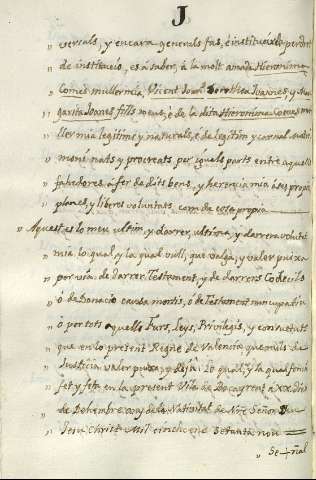 J
„ versals, y encara generals fas, e instituesch per dret
„ de institució, es a saber, a la molt amada Hieronima
„ Comes muller mia, Vicent Joan, Dorothea Joannes, y Mar
„ garita Joanes fills meus, e de la dita Hieronima Comes mu
„ ller mia legitims y naturals, e de legitim y carnal matri
„ moni nats y procreats per eguals parts entre aquells
„ fahadores a fer de dits bens, y herencia mia a ses propies
„ planes, y liberes voluntats, com de cosa propia
„ Aquest es lo meu ultim, y darrer, ultima, y darrera voluntat
„ mia, lo qual, y la qual vull, que valga, y valer puixa
„ per via de darrer Testament, y de darrers Codecils
„ ó de Donacio causa mortis, o de Testament nuncupatiu
„ ó per tots aquells Furs, Leys, Privilegis, y
„ que en lo present Regne de Valencia que mils de
„ Justicia valer puixa y deja. Lo qual, y la qual fonch
„ fet y feta en la present Vila de Bocayrent a XX dies
„ de Dehembre any de la Nativitat de Nre Señor Deu
„ Jesu Christ Mil cinchcens Setanta nou
„ Se-ñal